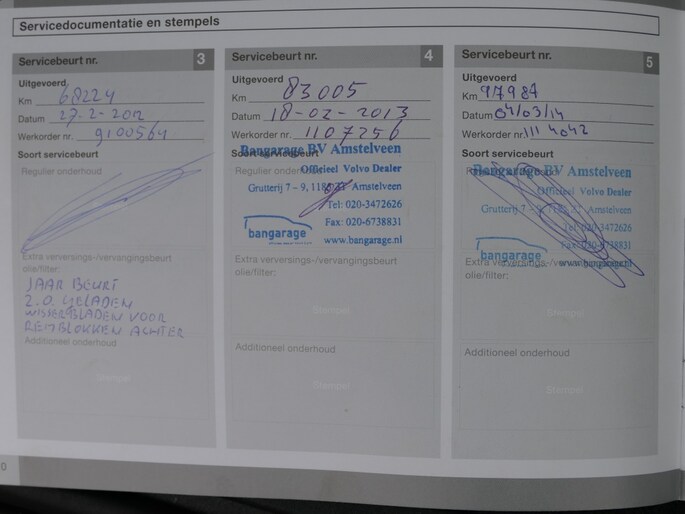 Servicedocumentatie en stempels
Servicebeurt nr. 3
Uitgevoerd
Km 68224
Datum 27-2-2012
Werkorder nr. 9100564
Soort servicebeurt
Regulier onderhoud
Extra verversings-/vervangingsbeurt
olie/filter:
JAAR BEURT
2.0. GELADEN
WISSERBLADEN VOOR
REMBLOKKEN ACHTER
Additioneel onderhoud
Stempel
Servicebeurt nr. 4
Uitgevoerd
Km 83005
Datum 18-02-2013
Werkorder nr. 1107256
Soort servicebeurt
Bangarage BV Amstelveen
Regulier onderhoud
Officieel Volvo Dealer
Grutterij 7 – 9, Amstelveen
Tel: 020-3472626
Fax: 020-6738831
bangarage
www.bangarage.nl
Extra verversings-/vervangingsbeurt
olie/filter:
Stempel
Additioneel onderhoud
Stempel
Servicebeurt nr. 5
Uitgevoerd
Km 97987
Datum 04/03/14
Werkorder nr. 1114042
Soort servicebeurt
Bangarage BV Amstelveen
Officieel Volvo Dealer
Grutterij 7 – 9, Amstelveen
Tel: 020-3472626
Fax: 020-6738831
bangarage
www.bangarage.nl
Extra verversings-/
olie/filter:
Stempel
Additioneel onderhoud
Stempel